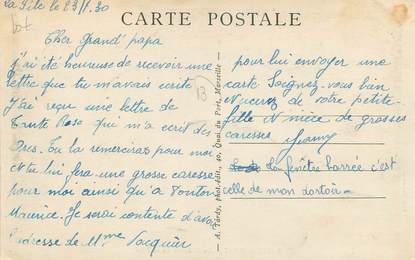 La Pile le 23/1.30
CARTE POSTALE
Lot
Cher Grand' papa
j'ai été heureuse de recevoir une
lettre que tu m'avais écrite
J'ai reçu une lettre de
Tante Rose qui m'a écrit des
Tu la remercieras pour moi
et tu lui fera une grosse caresse
pour moi ainsi qu'a Tonton
Maurice. Je serai contente d'avoir
l'adresse de Mme Vacquier
pour lui envoyer une
carte Soignez-vous bien
Recevez de votre petite-
fille et nièce de grosses
caresses
La fenêtre barrée c'est
celle de mon dortoir-
A. Tardy, phot.-édit., 10, Quai du Port, Marseille
13